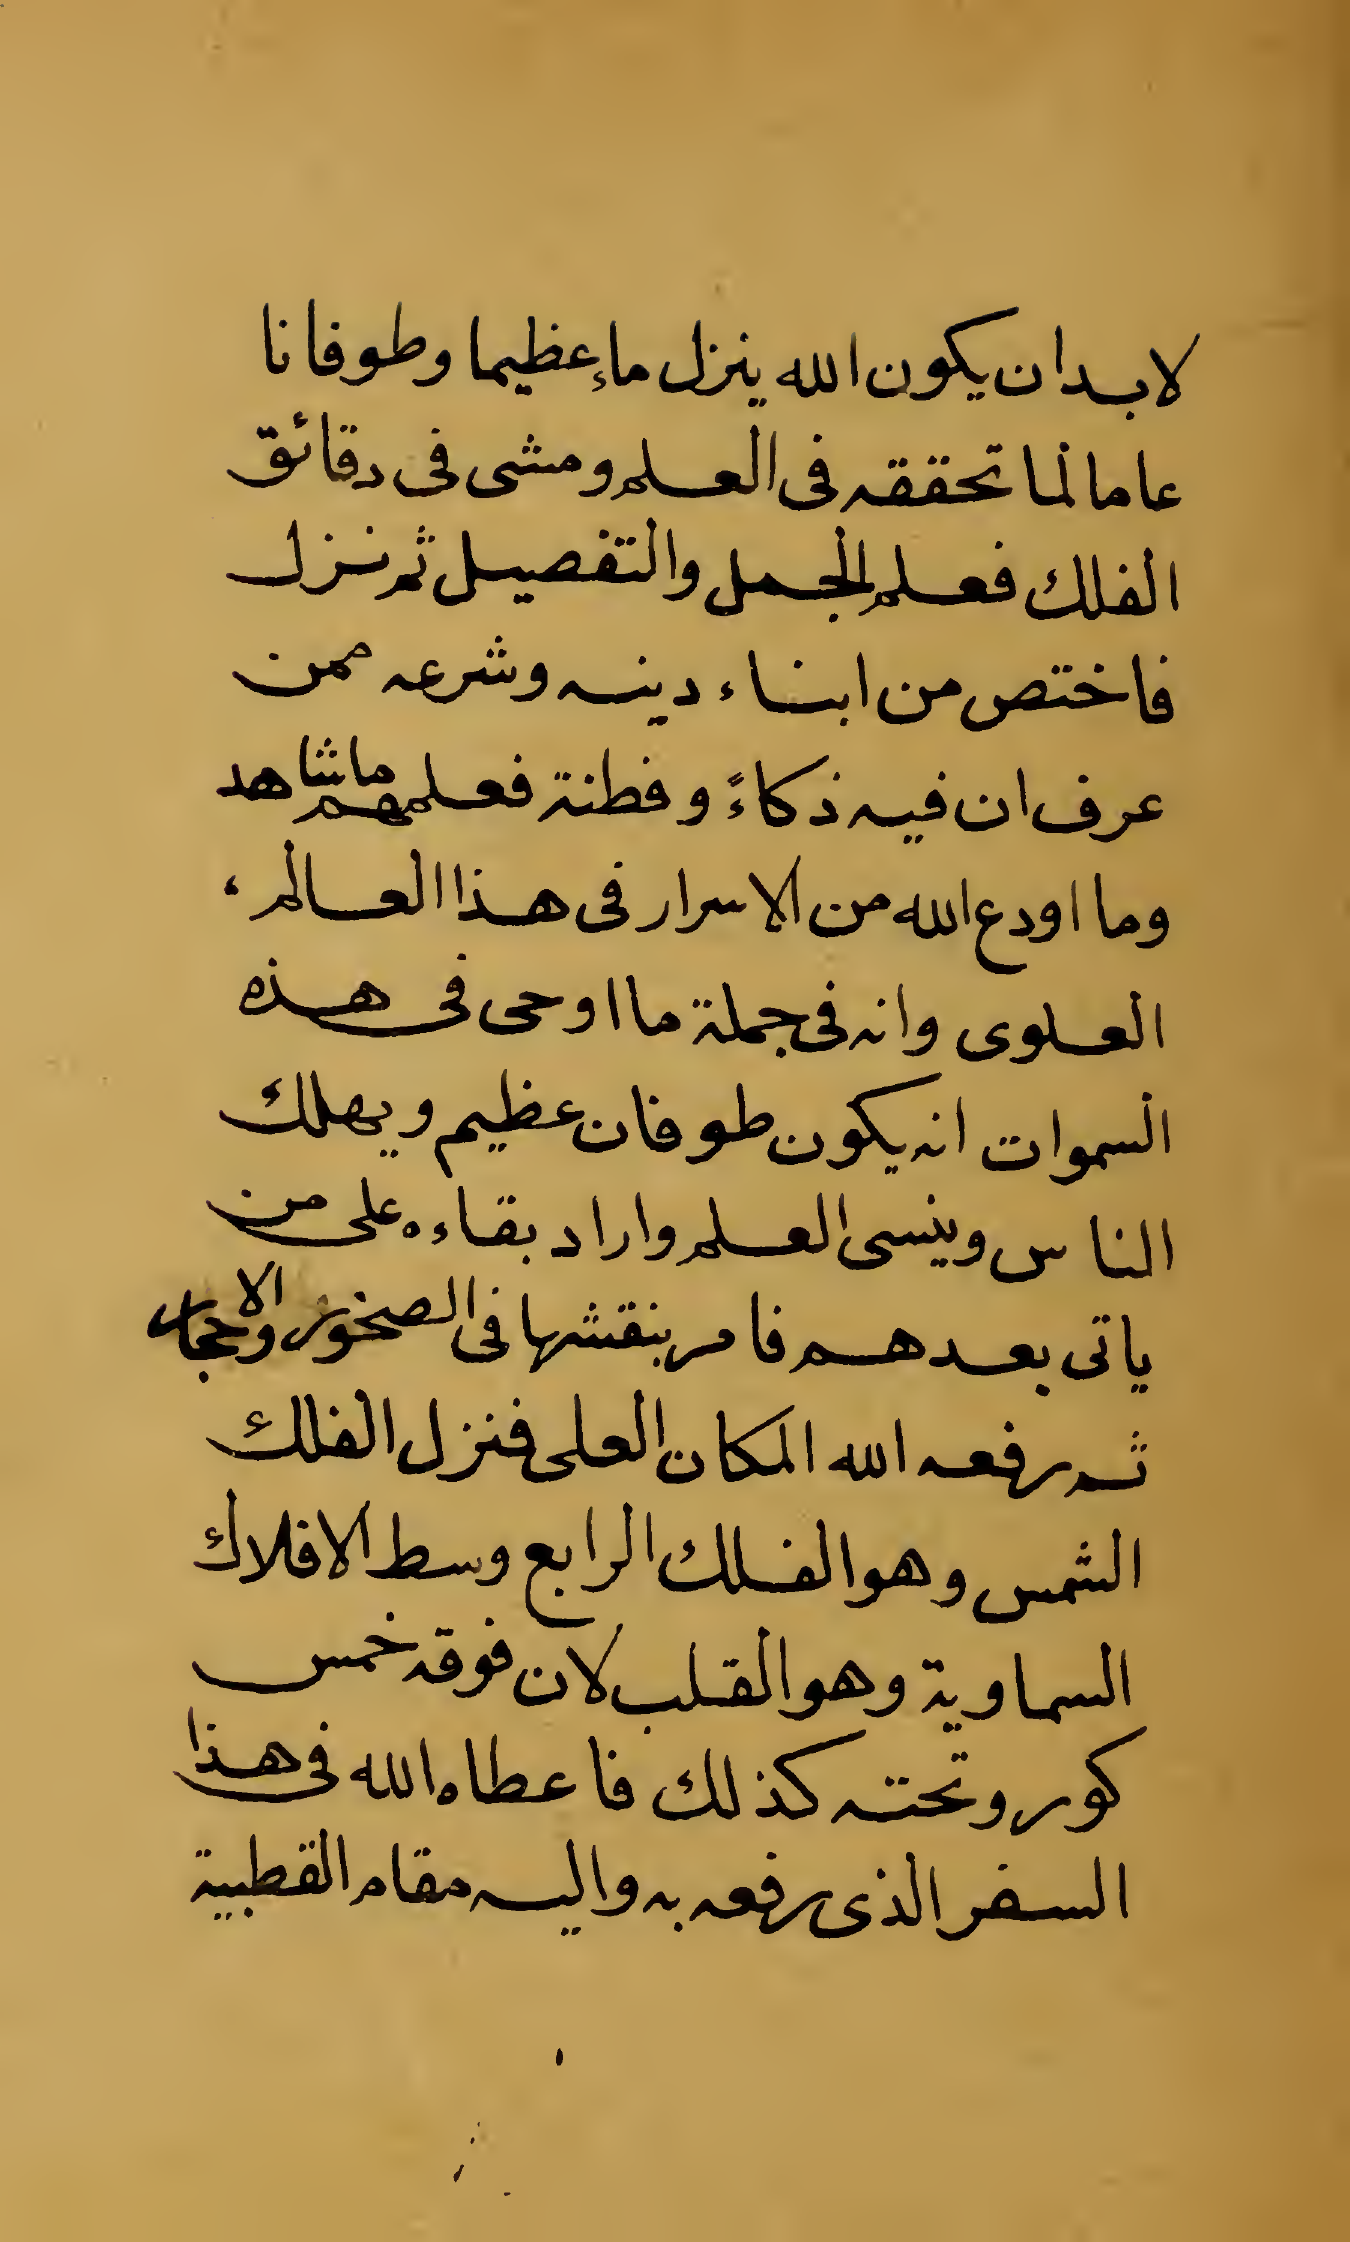 لابدان يكون الله ينزل ماء عظيما وطوفانا
عاما لما تحققه فى العلم ومشى فى دقائق
الفلك فعلم الجمل والتفصيل ثم نزل
فاختص من ابناء دينه وشرعه ممن
عرف ان فيه ذكاءً وفطنة فعلمهم ماشاهد
وما اودع الله من الاسرار فى هذا العالم
العلوى وانه فى جملة ما اوحى فى هذه
السموات انه يكون طوفان عظيم ويهلك
الناس وينسى العلم واراد بقاءه على من
ياتى بعدهم فامر بنقشها فى الصخور والاحجار
ثم رفعه الله المكان العلى فنزل الفلك
الشمس وهو الفلك الرابع وسط الافلاك
السماوية وهو القلب لان فوقه خمس
كور وتحته كذلك فاعطاه الله فى هذا
السفر الذى رفعه به واليه مقام القطبية